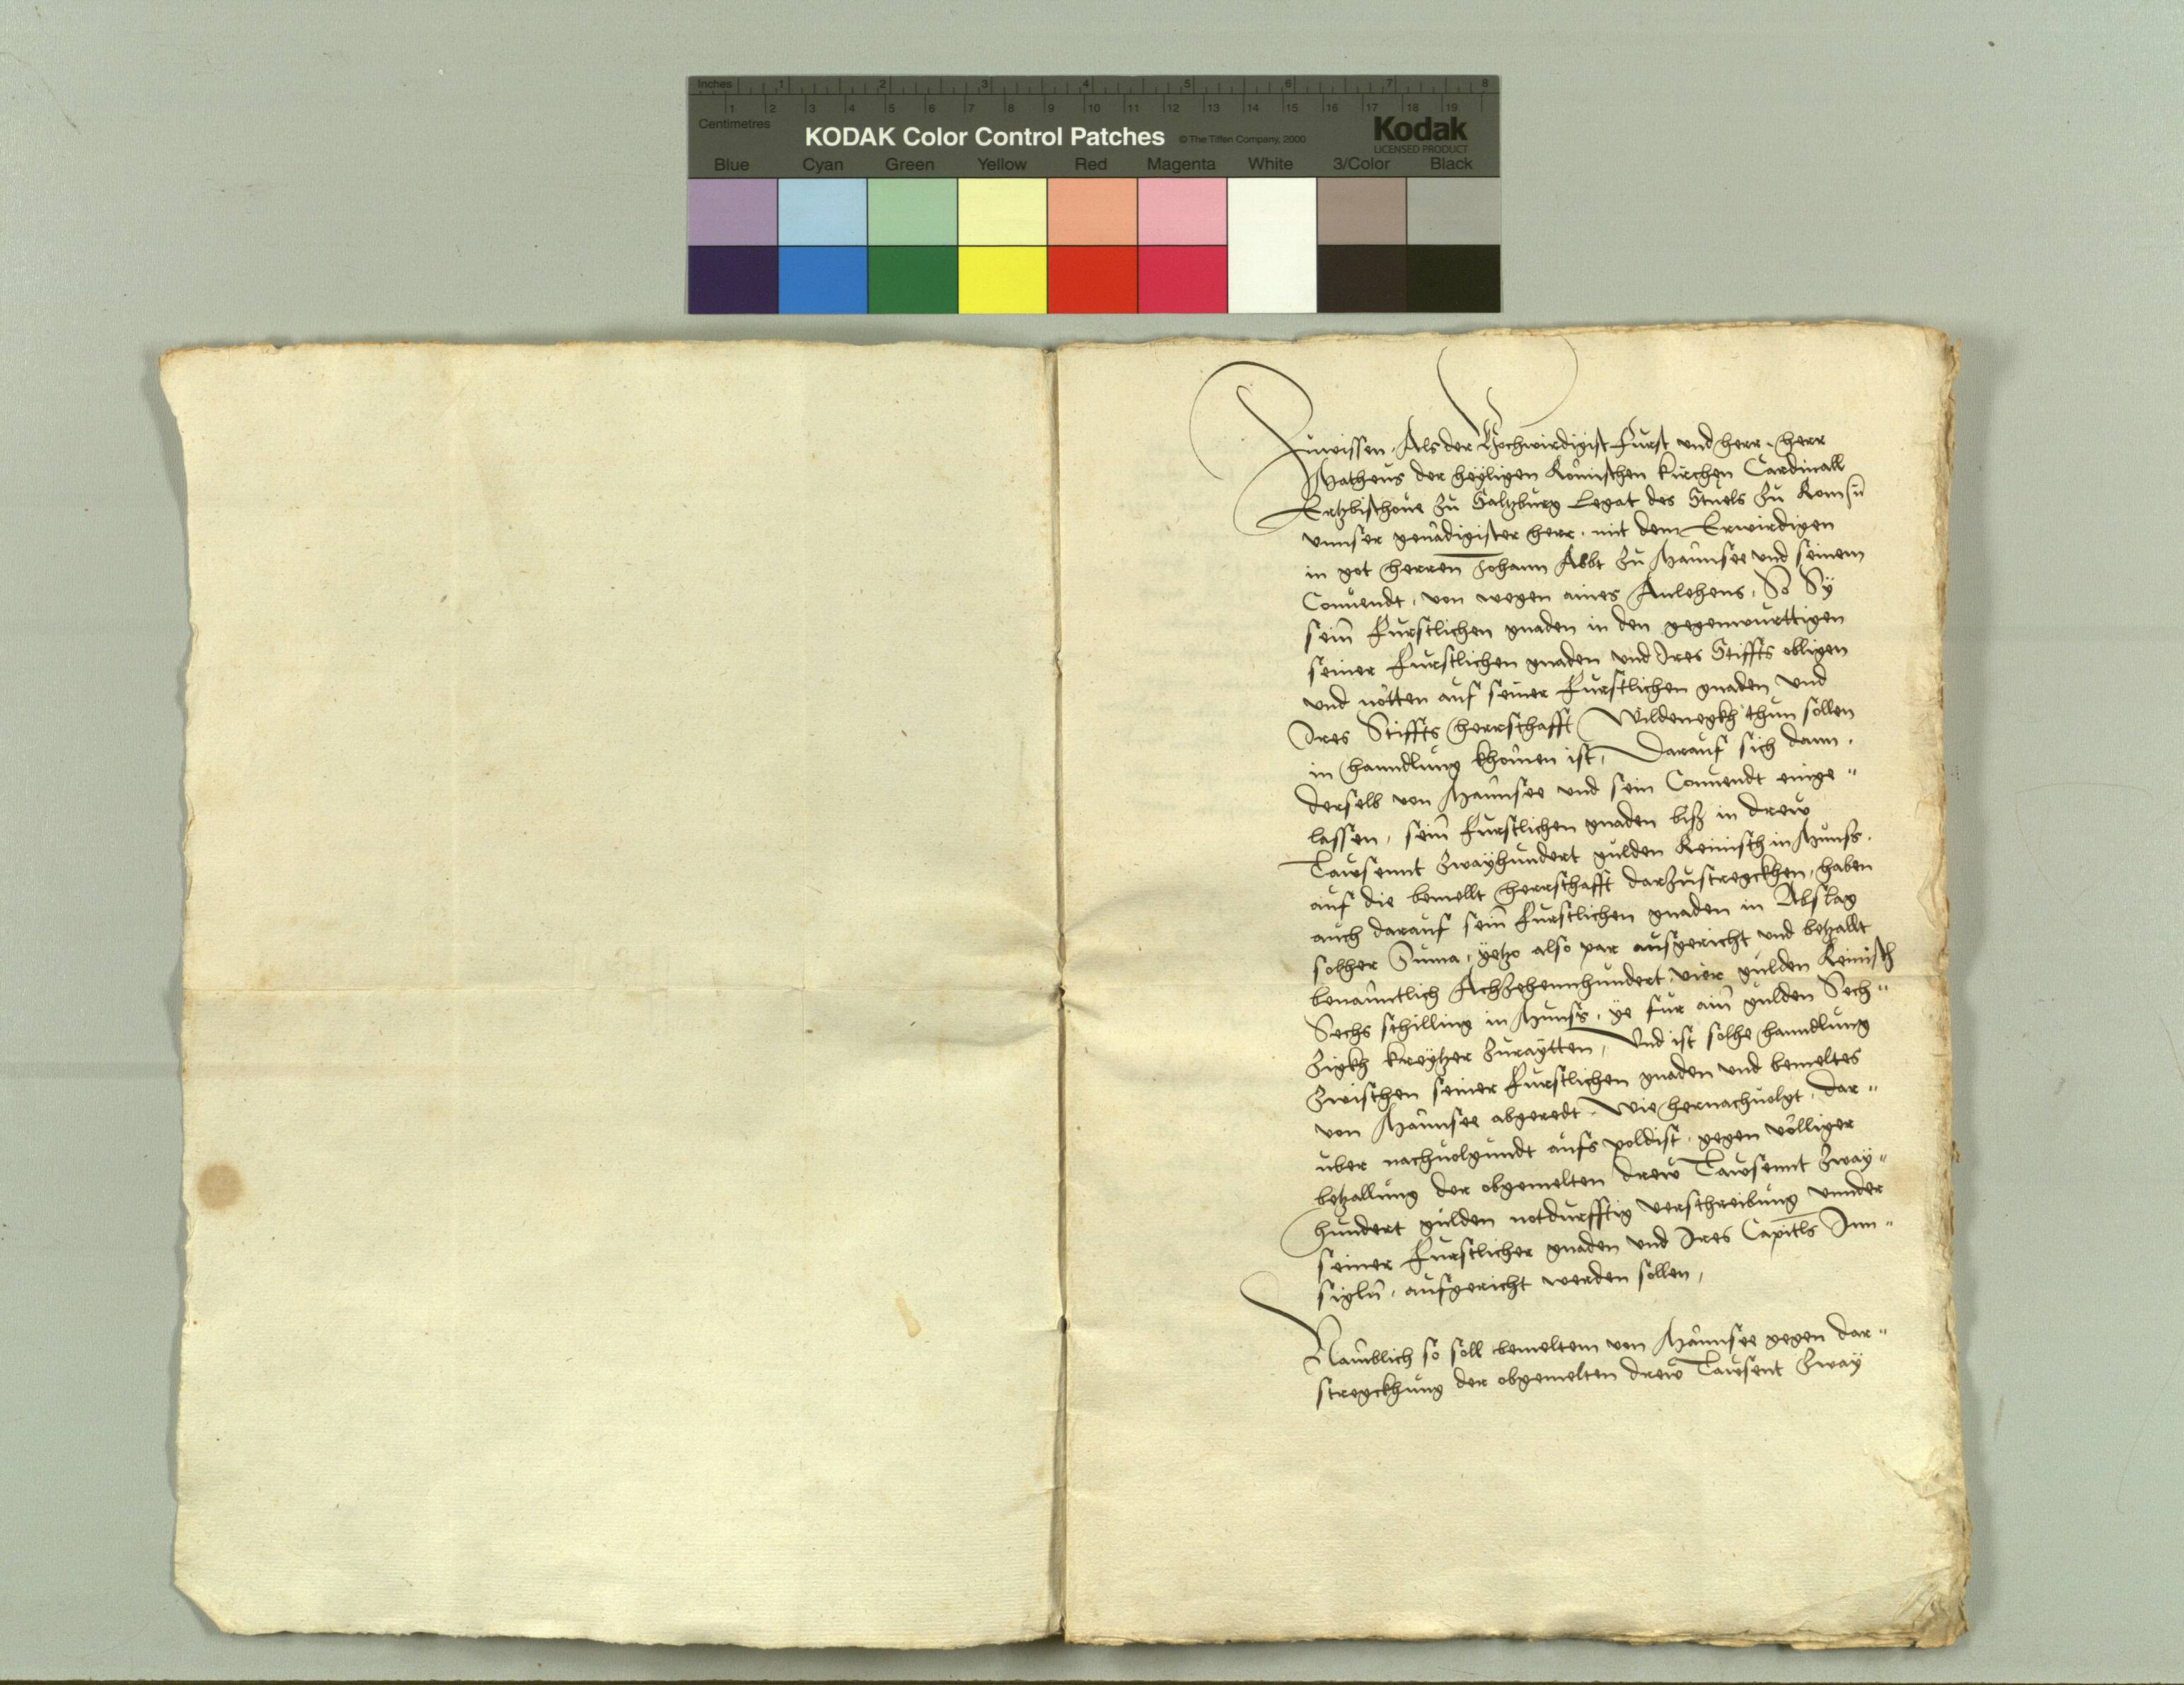 Inches 1 2 3 4 5 6 7 8
1 2 3 4 5 6 7 8 9 10 11 12 13 14 15 16 17 18 19
Centimetres
KODAK Color Control Patches © The Tiffen Company, 2000 Kodak
LICENSED PRODUCT
Blue Cyan Green Yellow Red Magenta White 3/Color Black
Zuwissen. Als der Hochwirdigist Furst und herr. herr
Matheus der heyligen Römischen kirchen Cardinall
Ertzbischoue zu Saltzburg Legat des Stuels zu Rom
vnnser genädigister herr. mit dem Erwirdigen
in got herren Johann Abbt zu Männsee und seinem
Conuendt, von wegen aines Anlehens, So Sy
sein̄ Furstlichen gnaden in den gegenwurttigen
seiner Furstlichen gnaden und Ires Stiffts obligen
und nötten auf seiner Furstlichen gnaden und
Ires Stiffts herrschafft Wildenegkh thun sollen
in hanndlung khomen ist, Darauf sich dann.
derselb von Männsee und sein Conuendt einge"
lassen, sein̄ Furstlichen gnaden biß in drew
Tawsennt Zwayhundert gulden Reinisch in Munß.
auf die bemellt herrschafft darzustregckhen, haben
auch darauf sein̄ Furstlichen gnaden in Abslag
solher Suma, yetzo also par ausgericht und betzallt
benänntlich Achzehennhundert vier gulden Reinisch
Sechs schilling in Munß, ye fur ain̄ gulden Sech"
zigkh kreytzer zuraytten, Und ist solhe hanndlung
zwischen seiner Furstlichen gnaden und bemeltes
von Männsee abgeredt. Wie hernachuolgt, dar"
uber nachuolgundt aufs poldist. gegen völliger
betzallung der obgemelten drew Tawsennt Zway"
hundert gulden notdurfftig verschreibung vnnder
seiner Furstlicher gnaden und Ires Capitls Inn"
sigln̄, aufgericht werden sollen,
Nämblich so soll bemeltem von Männsee gegen dar"
stregckhung der obgemelten drew Tawsent Zway